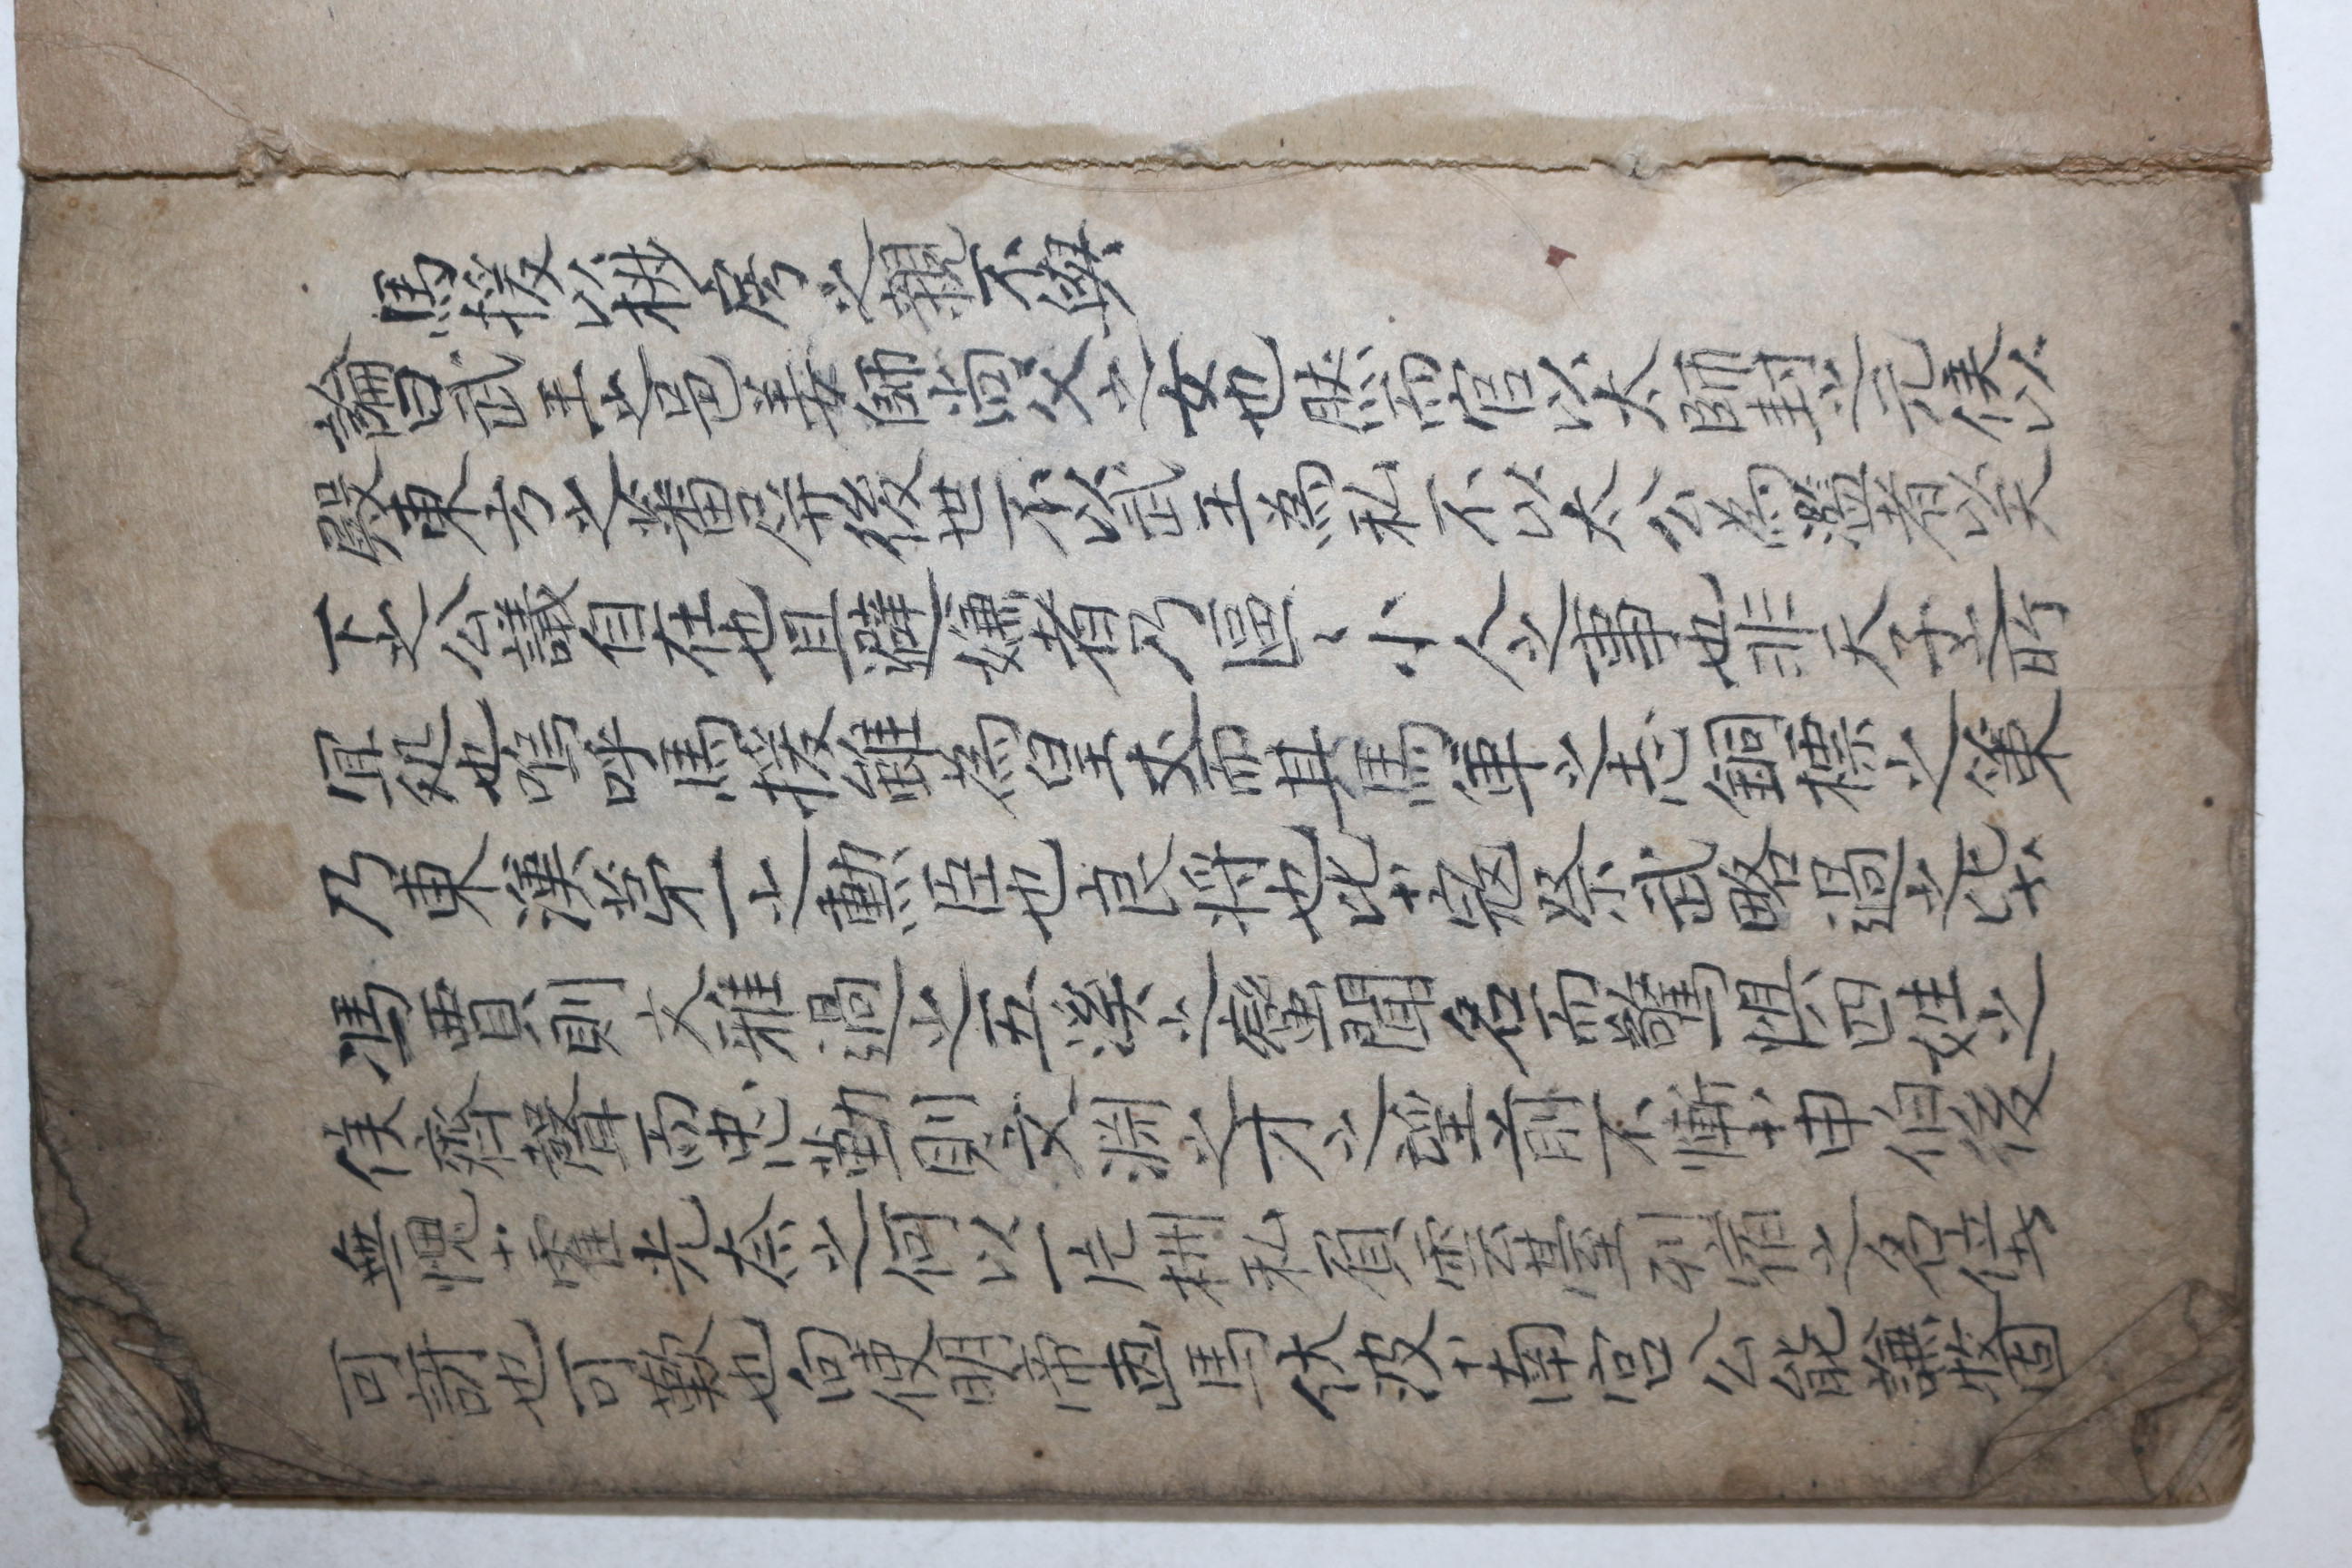 馬援以椒房之親不與
論曰武王之邑姜師尚父之女也然而官以太師封之元侯以
殿東方之蕃屏後世不以武王為私不以太公為濫者以天
下之公議自在也且避嫌者乃區〻小人之事也非天子之所
冝処也嗚呼馬援雖為皇丈而其馬革之志銅標之策
乃東漢苐一之勳臣也良将也比於寇祭武略過之比於
馮賈則文雅過之五溪之蠻聞名而驚惧四姓之
侯齊聲而忠勤則文淵之才之望前不慚於申伯後
無愧於霍光奈之何以一片椒私負雲臺列宿之名
可訝也可歎也向使明帝画馬伏波於南宮公能謙牧固